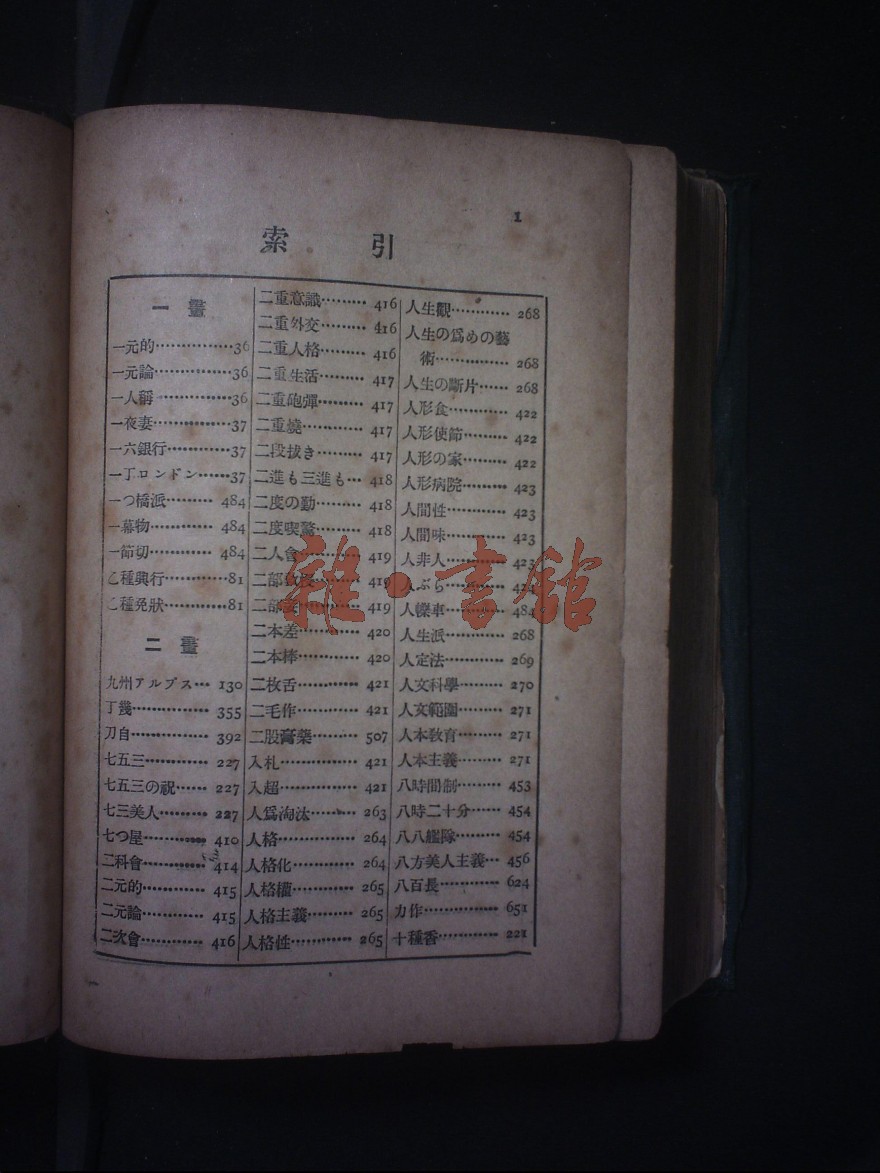 1
索 引
一 畫
一元的……………36
一元論……………36
一人稱……………36
一夜妻……………37
一六銀行…………37
一丁ロンドン……37
一つ橋派………484
一幕物…………484
一節切…………484
乙種興行…………81
乙種免狀…………81
二 畫
九州アルプス…130
丁幾……………355
刀自……………392
七五三…………227
七五三の祝……227
七三美人………227
七つ屋…………410
二科會…………414
二元的…………415
二元論…………415
二次會…………416
二重意識………416
二重外交………416
二重人格………416
二重生活………417
二重砲彈………417
二重燒…………417
二段拔き………417
二進も三進も…418
二度の勤………418
二度喫驚………418
二人會…………419
419
419
二本差…………420
二本棒…………420
二枚舌…………421
二毛作…………421
二股膏藥………507
入札……………421
入超……………421
人爲淘汰………263
人格……………264
人格化…………264
人格權…………265
人格主義………265
人格性…………265
人生觀…………268
人生の爲めの藝
術………………268
人生の斷片……268
人形食…………422
人形使節………422
人形の家………422
人形病院………423
人間性…………423
人間味…………423
人非人…………423
人轢車…………484
人生派…………268
人定法…………269
人文科學………270
人文範圍………271
人本敎育………271
人本主義………271
八時間制………453
八時二十分……454
八八艦隊………454
八方美人主義…456
八百長…………624
力作……………651
十種香…………221
雜·書館